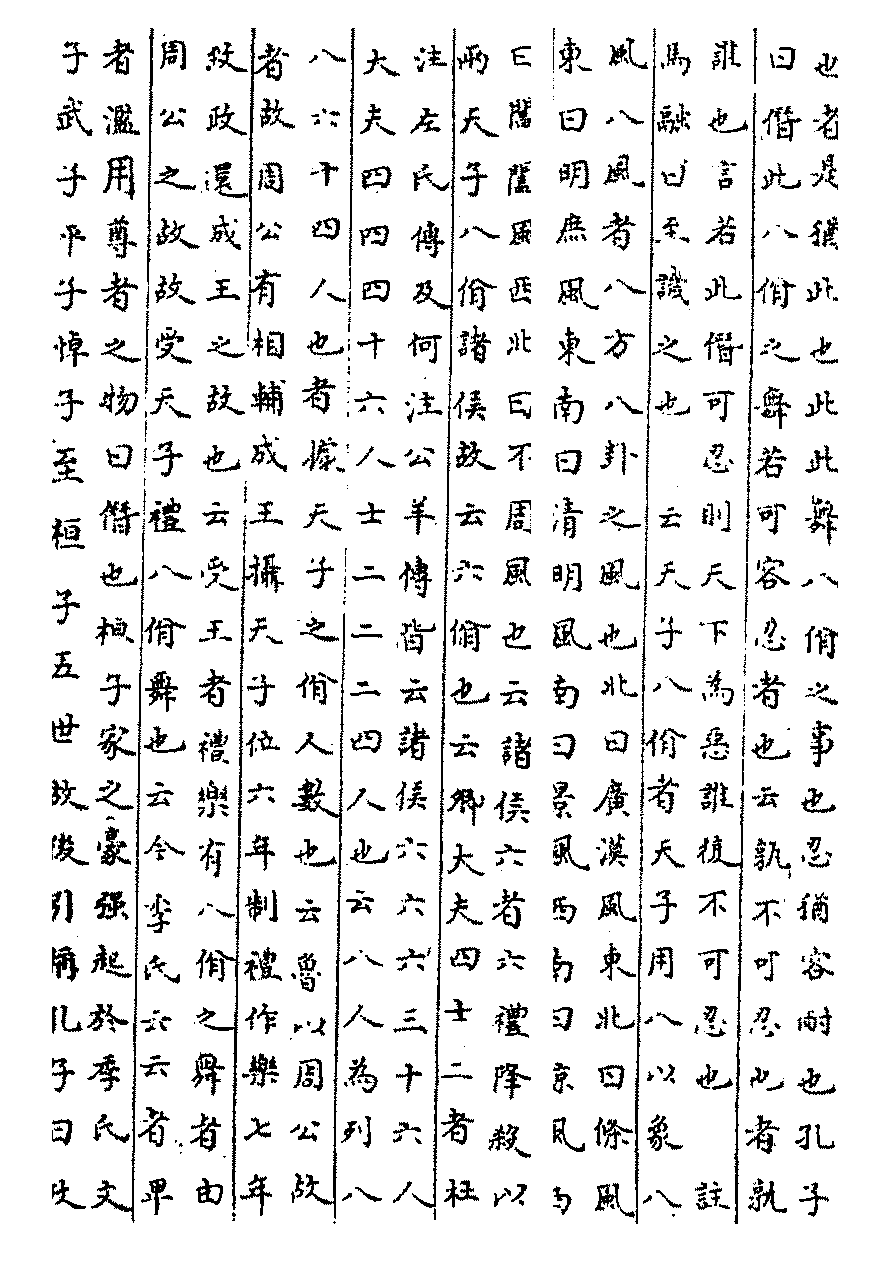 也者是猶此也此此舞八佾之事也忍猶容耐也孔子
曰僭此八佾之舞若可容忍者也云孰不可忍也者孰
誰也言若此僭可忍則天下為惡誰復不可忍也 註
馬融曰至譏之也 云天子八佾者天子用八以象八
風八風者八方八卦之風也北曰廣漠風東北曰條風
東曰明庶風東南曰清明風南曰景風西南曰凉風西
曰閶闔風西北曰不周風也云諸侯六者六禮降殺以
兩天子八佾諸侯故云六佾也云卿大夫四士二者杜
注左氏傳及何注公羊傳皆云諸侯六六六三十六人
大夫四四四十六人士二二二四人也云八人為列八
八六十四人也者據天子之佾人數也云魯以周公故
者故周公有相輔成王攝天子位六年制禮作樂七年
致政還成王之故也云受王者禮樂有八佾之舞者由
周公之故故受天子禮八佾舞也云今季氏云云者卑
者濫用尊者之物曰僭也桓子家之豪强起於季氏文
子武子平子悼子至桓子五世故後引稱孔子曰政